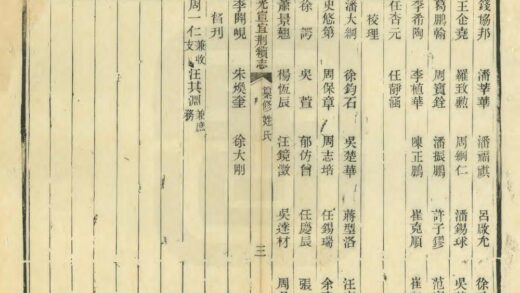 錢協邦 潘莘華 潘福祺 呂啟允 徐
王企堯 羅致勳 周綱仁 潘錫球 吳
葛鵬翰 周寶銓 潘振鵬 許子鏐 范
李希陶 李楨華 陳正鵬 崔克順 崔
任杏元 任靜涵
校理
潘大綱 徐鈞石 吳楚華 蔣瑬洛 汪
史悠第 周保章 周志培 任錫瑞 余
徐諤 吳萱 郁仿曾 任慶辰 張
蕭景翹 楊恆辰 汪鏡澂 吳達材 周
光宣宜荊續志 纂修姓氏 三
李開峴 朱煥奎 徐大剛
刊
周一仁兼收支 汪其淵兼庶務